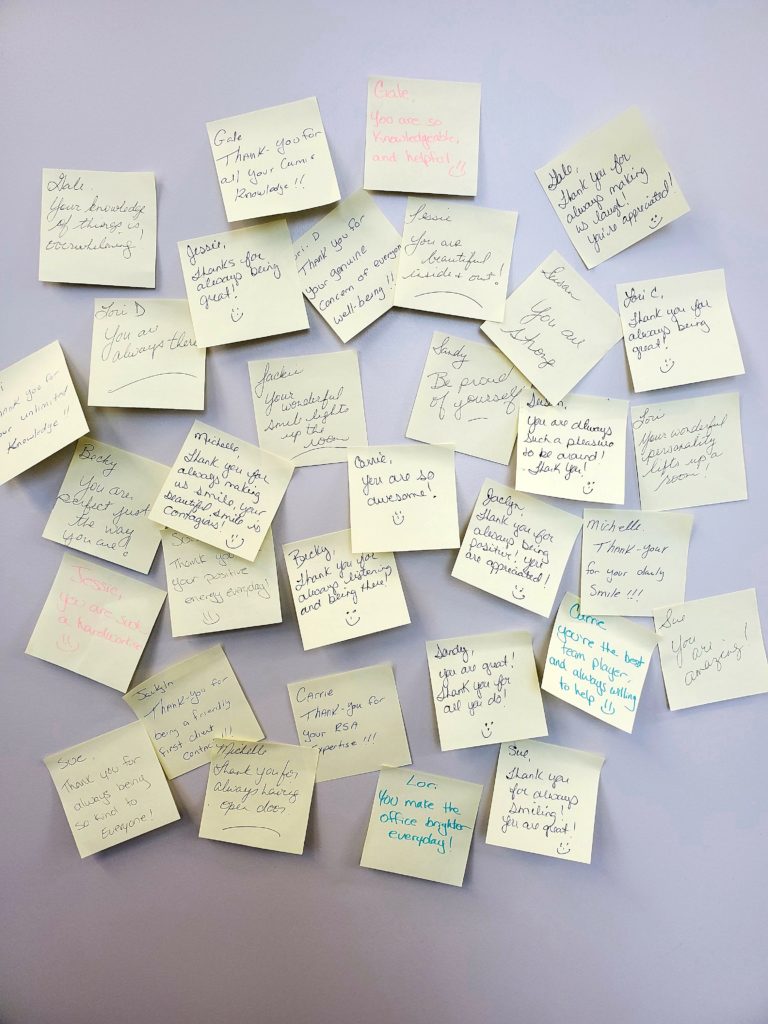 Gale,
You are so
Knowledgeable,
and helpful
Gale
Thank-you for
all your
Knowledge!!
Gale,
Thank you for
always making
us laugh!
you're appreciated!
Gale,
Your knowledge
of things is
overwhelming!
Jessie,
Thanks for
always being
great!
Lori D
Thank you for
your genuine
concern of everyone
well-being!!
Jessie
You are
beautiful
inside & out!
Susan
You are
strong
Lori C,
Thank you for
always being
great!
Lori D
You are
always there
Thank you for
your unlimited
Knowledge!!
Jackie
Your
wonderful
smile lights
up the
room
Sandy
Be proud
of yourself
Susan,
You are always
such a pleasure
to be around!
Thank you!
Lori
Your wonderful
personality
lifts up a
room!
Becky
You are
perfect just
the way
you are!
Michelle,
Thank you for
always making
us smile, your
beautiful smile is
contagious!
Carrie,
you are so
awesome!
Jaclyn,
Thank you for
always being
positive! you
are appreciated!
Michelle,
Thank-you
for your daily
Smile!!!
Thank you
your positive
energy everyday!
Becky,
Thank you for
always listening
and being there!
Jessie,
you are such
a hardworker
Carrie
You're the best
team player,
and always willing
to help
Sue
You
are
amazing!
Sandy,
you are great!
Thank you for
all you do!
Jackyln
Thank-you for
being a friendly
first client
Carrie
Thank-you for
your RSA
Expertise!!!
Sue,
Thank you for
always being
so kind to
Everyone!
Michelle
Thank you for
always having
open door
Lori
You make the
office brighter
everyday!
Sue,
Thank you
for always
smiling!
You are great!